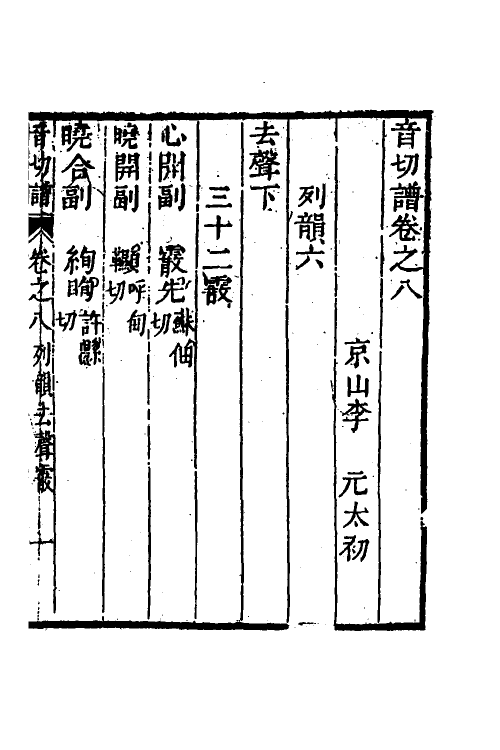 音切譜卷之八
京山李 元太初
列韻六
去聲下
三十二霰
心開副 霰先 蘇佃切
曉開副 韅顯 呼甸切
曉合副 絢 許縣切
音切譜 卷之八 列韻去聲霰 一